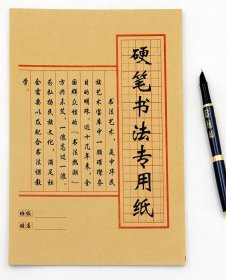 硬笔书法专用纸
书法艺术,是中华民
族艺术宝库中一颗璀璨夺
目的明珠。近十几年来,全
国群众性的“书法热潮”
方兴未艾,一浪高过一浪。
为弘扬民族文化,满足社
会需要以及配合书法课教
学。
班级
姓名